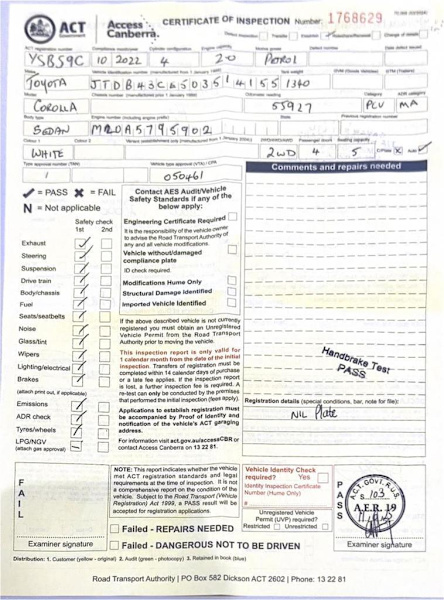 ACT Government
Access Canberra
CERTIFICATE OF INSPECTION Number: 1768629
YSB59C 10 2022 4 20 Petrol
Make
TOYOTA JTDB43C650351 1340
Model
COROLLA 55927 PCV MA
Body type Engine number (including engine prefix) State Previous registration number
SEDAN
Colour 1 Colour 2
WHITE 2WD 4 5
1 050461
✓ = PASS ✖ = FAIL
N = Not applicable
Safety check
1st 2nd
Exhaust
Steering
Suspension
Drive train
Body/chassis
Fuel
Seats/seatbelts
Noise
Glass/tint
Wipers
Lighting/electrical
Brakes
(attach print out, if applicable)
Emissions
ADR check
Tyres/wheels
LPG/NGV
(attach gas approval)
Contact AES Audit/Vehicle
Safety Standards if any of the
below apply:
Engineering Certificate Required
It is the responsibility of the vehicle owner
to advise the Road Transport Authority of
any and all vehicle modifications.
Vehicle without/damaged
compliance plate
ID check required.
Modifications Hume Only
Structural Damage Identified
Imported Vehicle Identified
If the above described vehicle is not currently
registered you must obtain an Unregistered
Vehicle Permit from the Road Transport
Authority prior to moving the vehicle.
This inspection report is only valid for
1 calendar month from the date of the initial
inspection. Transfers of registration must be
completed within 14 calendar days of purchase
or a late fee applies. If the inspection report
is lost, a further inspection fee is required. A
re-test can only be conducted by the premises
that performed the initial inspection (fees apply).
Applications to establish registration must
be accompanied by Proof of Identity and
notification of the vehicle's ACT garaging
address.
For information visit act.gov.au/accessCBR or
contact Access Canberra on 13 22 81.
Comments and repairs needed
Handbrake Test
PASS
Registration details (special conditions, bar, note for file):
NIL Plate
FAIL
Examiner signature
NOTE: This report indicates whether the vehicle
met ACT registration standards and legal
requirements at the time of inspection. It is not
a comprehensive report on the condition of the
vehicle. Subject to the Road Transport (Vehicle
Registration) Act 1999, a PASS result will be
accepted for registration applications.
Failed - REPAIRS NEEDED
Failed - DANGEROUS NOT TO BE DRIVEN
Vehicle Identity Check
required? Yes
Identity Inspection Certificate
Number (Hume Only)
#
Unregistered Vehicle
Permit (UVP) required?
Restricted Unrestricted
PASS
S 103
A.E.R. 19
Examiner signature
Distribution: 1. Customer (yellow - original) 2. Audit (green - photocopy) 3. Retained in book (blue)
Road Transport Authority | PO Box 582 Dickson ACT 2602 | Phone: 13 22 81